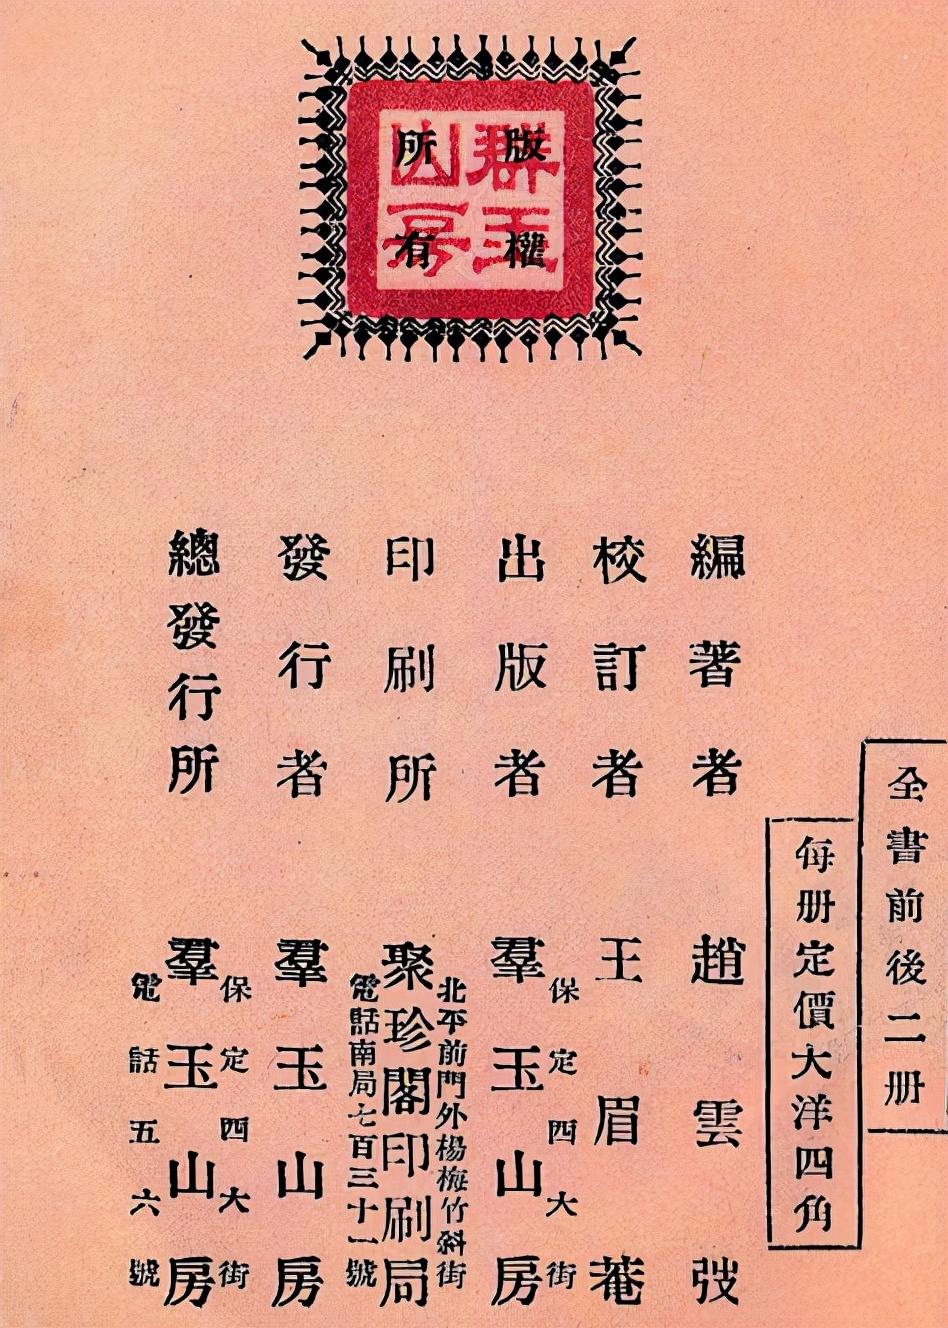 版權
所有
群玉
山房
全書前後二册
每册定價大洋四角
編著者 趙雲弢
校訂者 王眉菴
出版者 保定西大街
羣玉山房
印刷所 北平前門外楊梅竹斜街
聚珍閣印刷局
電話南局七百三十一號
發行者 羣玉山房
總發行所 保定西大街
羣玉山房
電話五六號